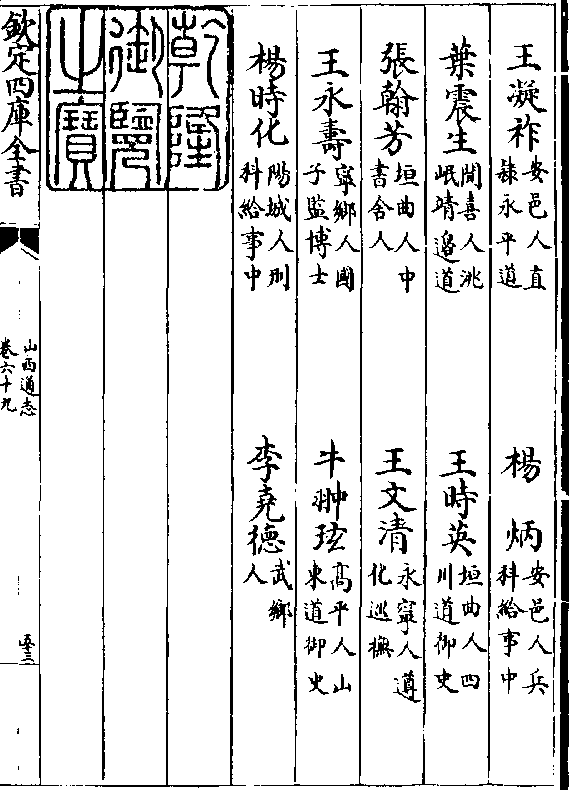 王凝祚 安邑人直隸永平道 楊炳 安邑人兵科給事中
葉震生 聞喜人洮岷靖邊道 王時英 垣曲人四川道御史
張翰芳 垣曲人中書舍人 王文清 永寧人遵化巡撫
王永壽 寧鄉人國子監博士 牛翀玹 高平人山東道御史
楊時化 陽城人刑科給事中 李堯德 武鄉人
乾隆御覽之寶
欽定四庫全書
山西通志
卷六十九
五十三